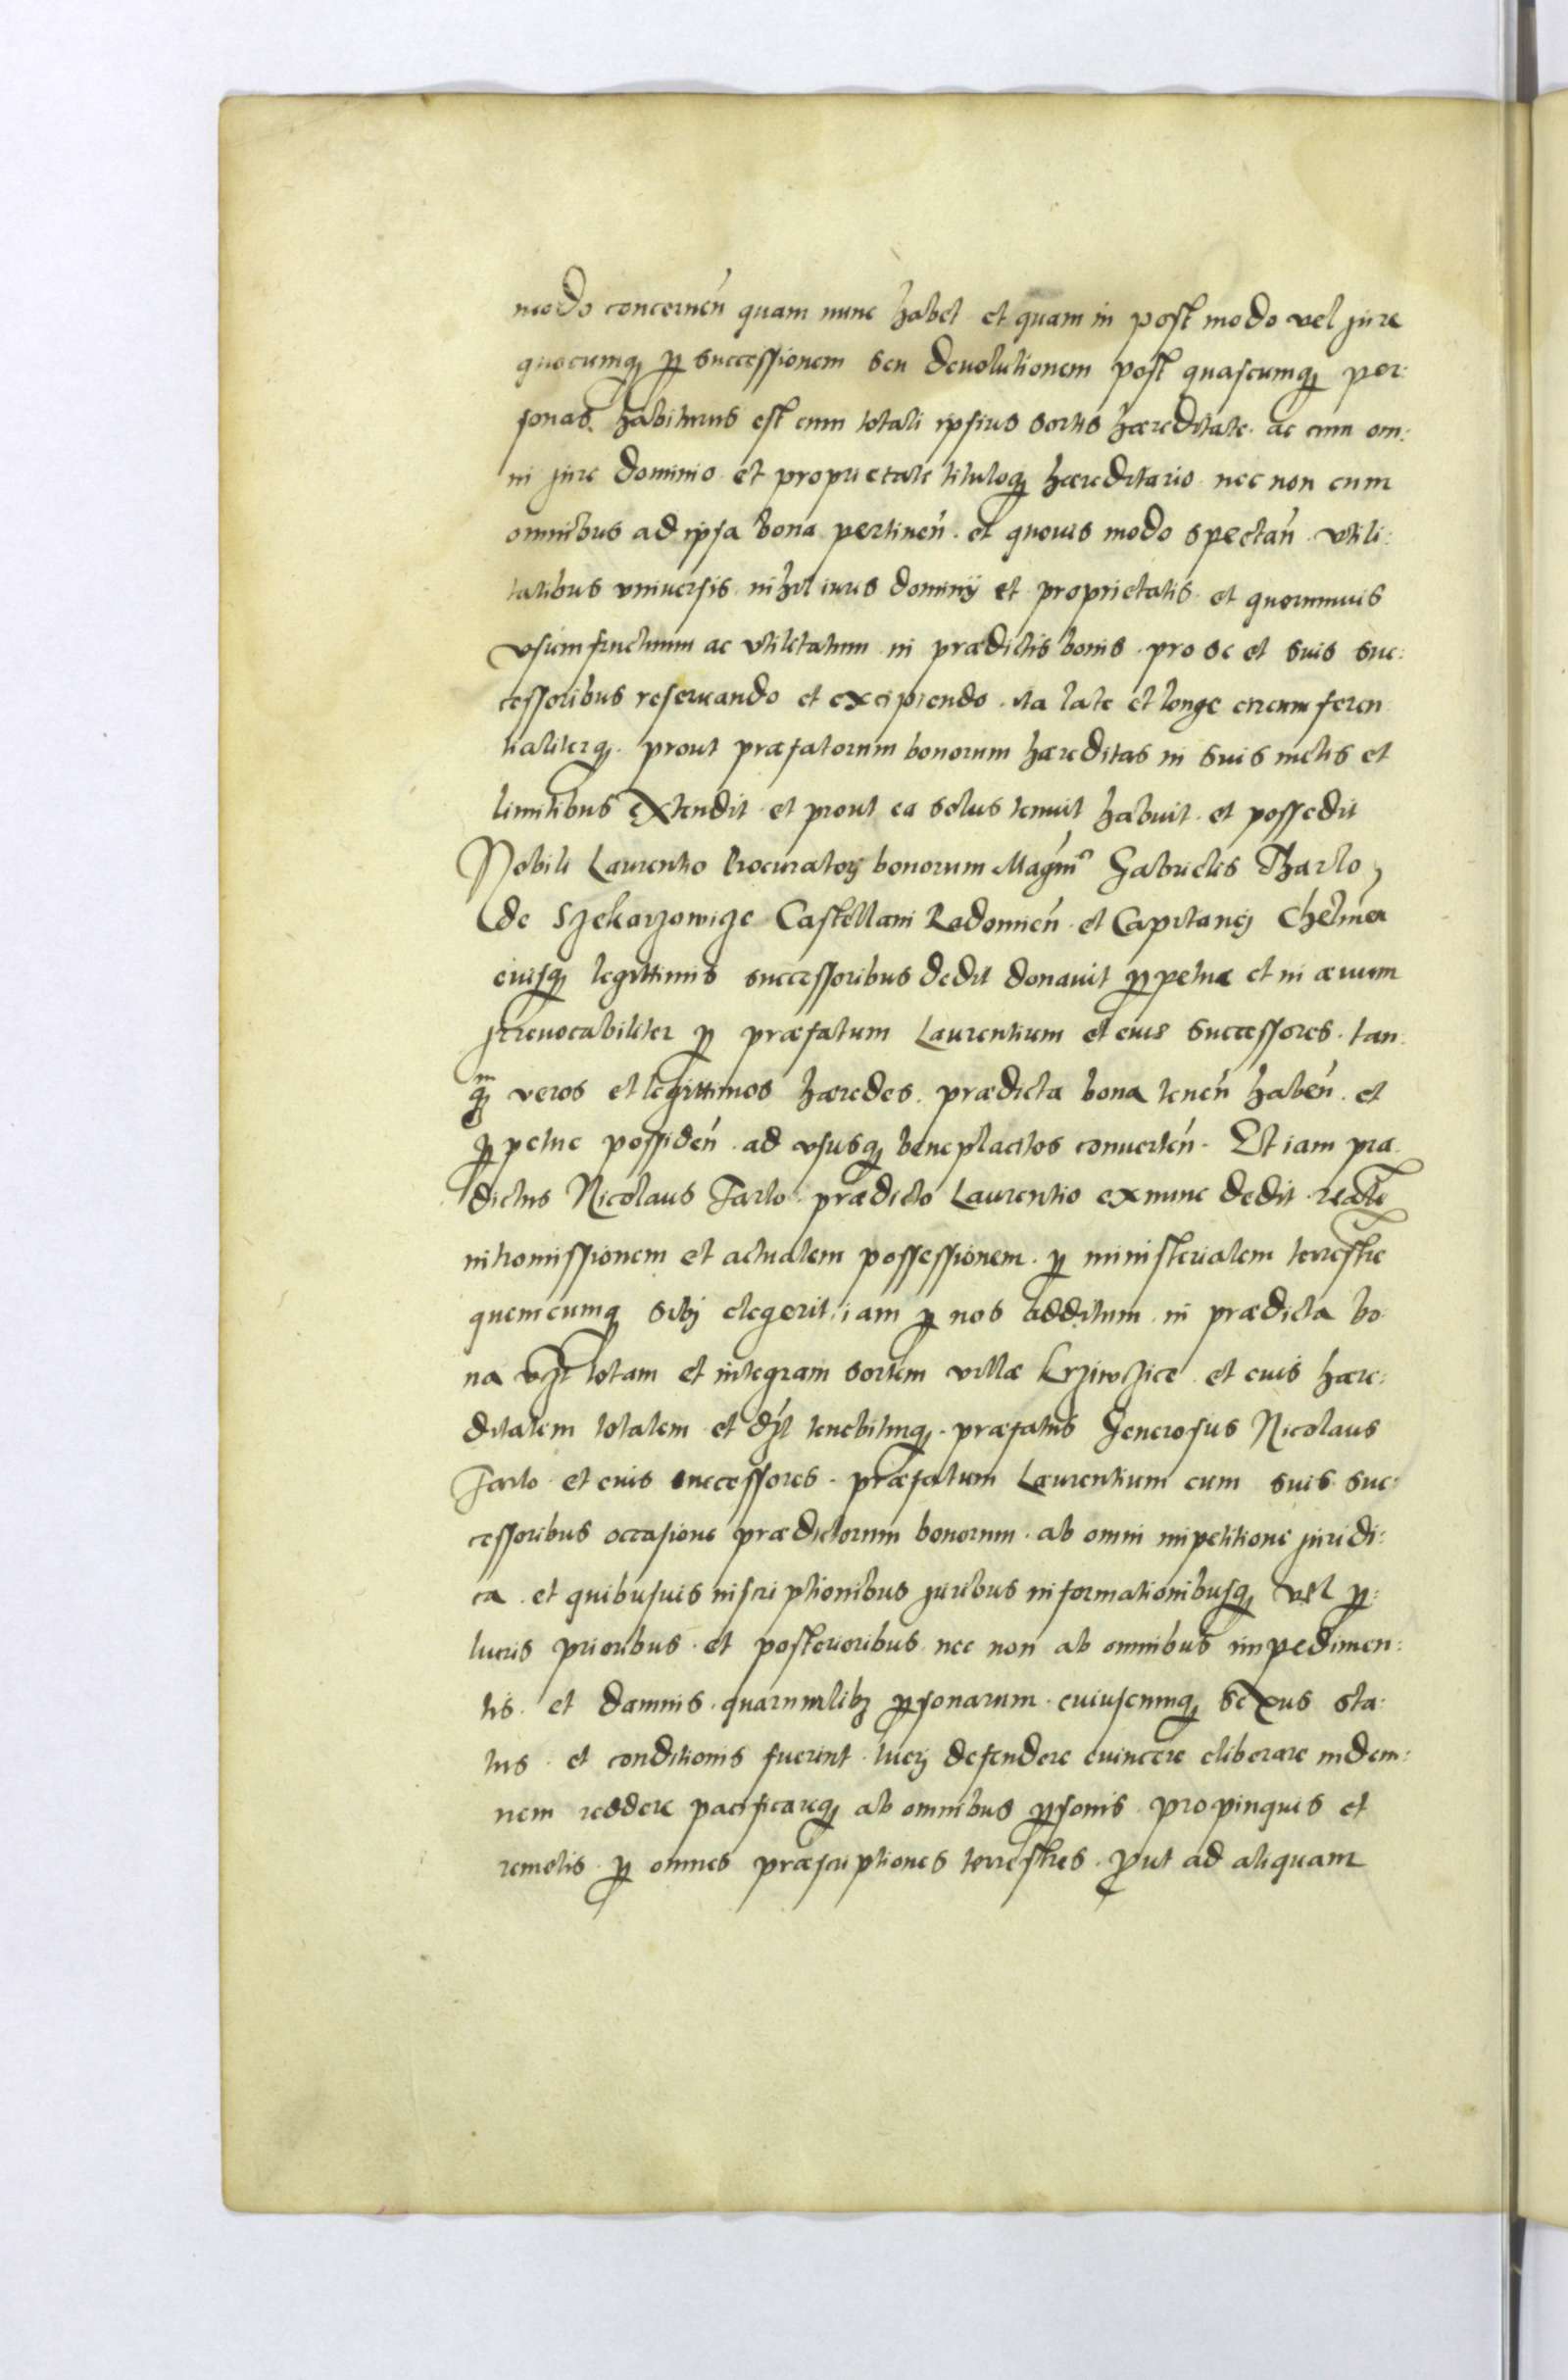 modo concernen̄ quam nunc habet et quam in post modo vel jure
quocumq̢ ꝑ successionem seu deuolutionem post quascumq̢ per:
sonas habiturus est cum totali ipsius sortis hæreditate. ac cum om:
ni jure dominio et proprietate tituloq̢ hæreditario nec non cum
omnibus ad ipsa bona pertinen̄. et quouis modo spectan̄ vtili:
tatibus vniuersis nihil iuris dominij et proprietatis et quorumuis
vsumfructuum ac vtilitatum in prædictis bonis. pro se et suis suc:
cessoribus reseruando et excipiendo. ita late et longe circumferen
tialiterq̢. prout præfatorum bonorum hæreditas in suis metis et
limitibus extendit et prout ea solus tenuit habuit et possedit
Nobili Laurentio Procuratorj bonorum Magn̄ci Gabrielis Tharlo
de Szekarzowicze Castellani Radomien̄ et Capitanej Chelmen̄
eiusq̢ legittimis successoribus dedit donauit ꝑpetuæ et in æuum
jrreuocabiliter ꝑ præfatum Laurentium et eius successores. tan
q̢m veros et legittimos hæredes. prædicta bona tenen̄ haben̄. et
ꝑpetue possiden̄. ad vsusq̢ beneplacitos conuerten̄. Et iam præ
dictus Nicolaus Tarlo prædicto Laurentio ex nunc dedit realē
intromissionem et actualem possessionem. ꝑ ministerialem terrestrē
quemcumq̢ sibj elegerit iam ꝑ nos additum in prædicta bo
na vzt totam et integram sortem villæ Krziwczice et eius hære:
ditatem totalem et dzt tenebiturq̢. præfatus Generosus Nicolaus
Tarlo et eius successores. præfatum Laurentium cum suis suc:
cessoribus occasione prædictorum bonorum. ab omni impetitione juridi:
ca. et quibusuis inscriptionibus juribus informationibusq̢ vel ꝑ:
lucris prioribus. et posterioribus nec non ab omnibus impedimen:
tis. et damnis. quarumlibz ꝑsonarum. cuiuscumq̢ sexus sta:
tus et conditionis fuerint tuerj defendere euincere eliberare indem:
nem reddere pacificareq̢ ab omnibus ꝑsonis. propinquis et
remotis. ꝑ omnes præscriptiones terrestres. ꝓut ad aliquam